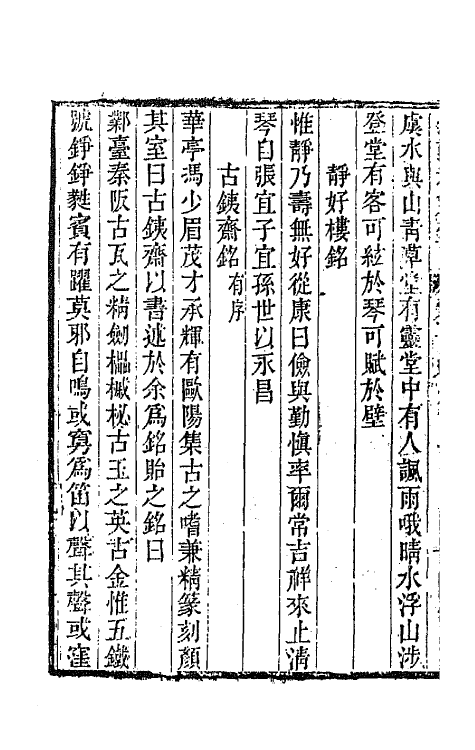 虞水與山靑草堂有靈堂中有人諷雨哦晴水浮山涉
登堂有客可絃於琴可賦於壁
靜好樓銘
惟靜乃壽無好從康曰儉與勤愼率爾常吉祥來止淸
琴自張宜子宜孫世以永昌
古銕齋銘有序
華亭馮少眉茂才承輝有歐陽集古之嗜兼精篆刻顏
其室曰古銕齋以書述於余爲銘貽之銘曰
鄴臺秦阪古瓦之精劒櫑椷柲古玉之英古金惟五鐵
號錚錚蕤賓有躍莫邪自鳴或寫爲笛以聲其聲或窪